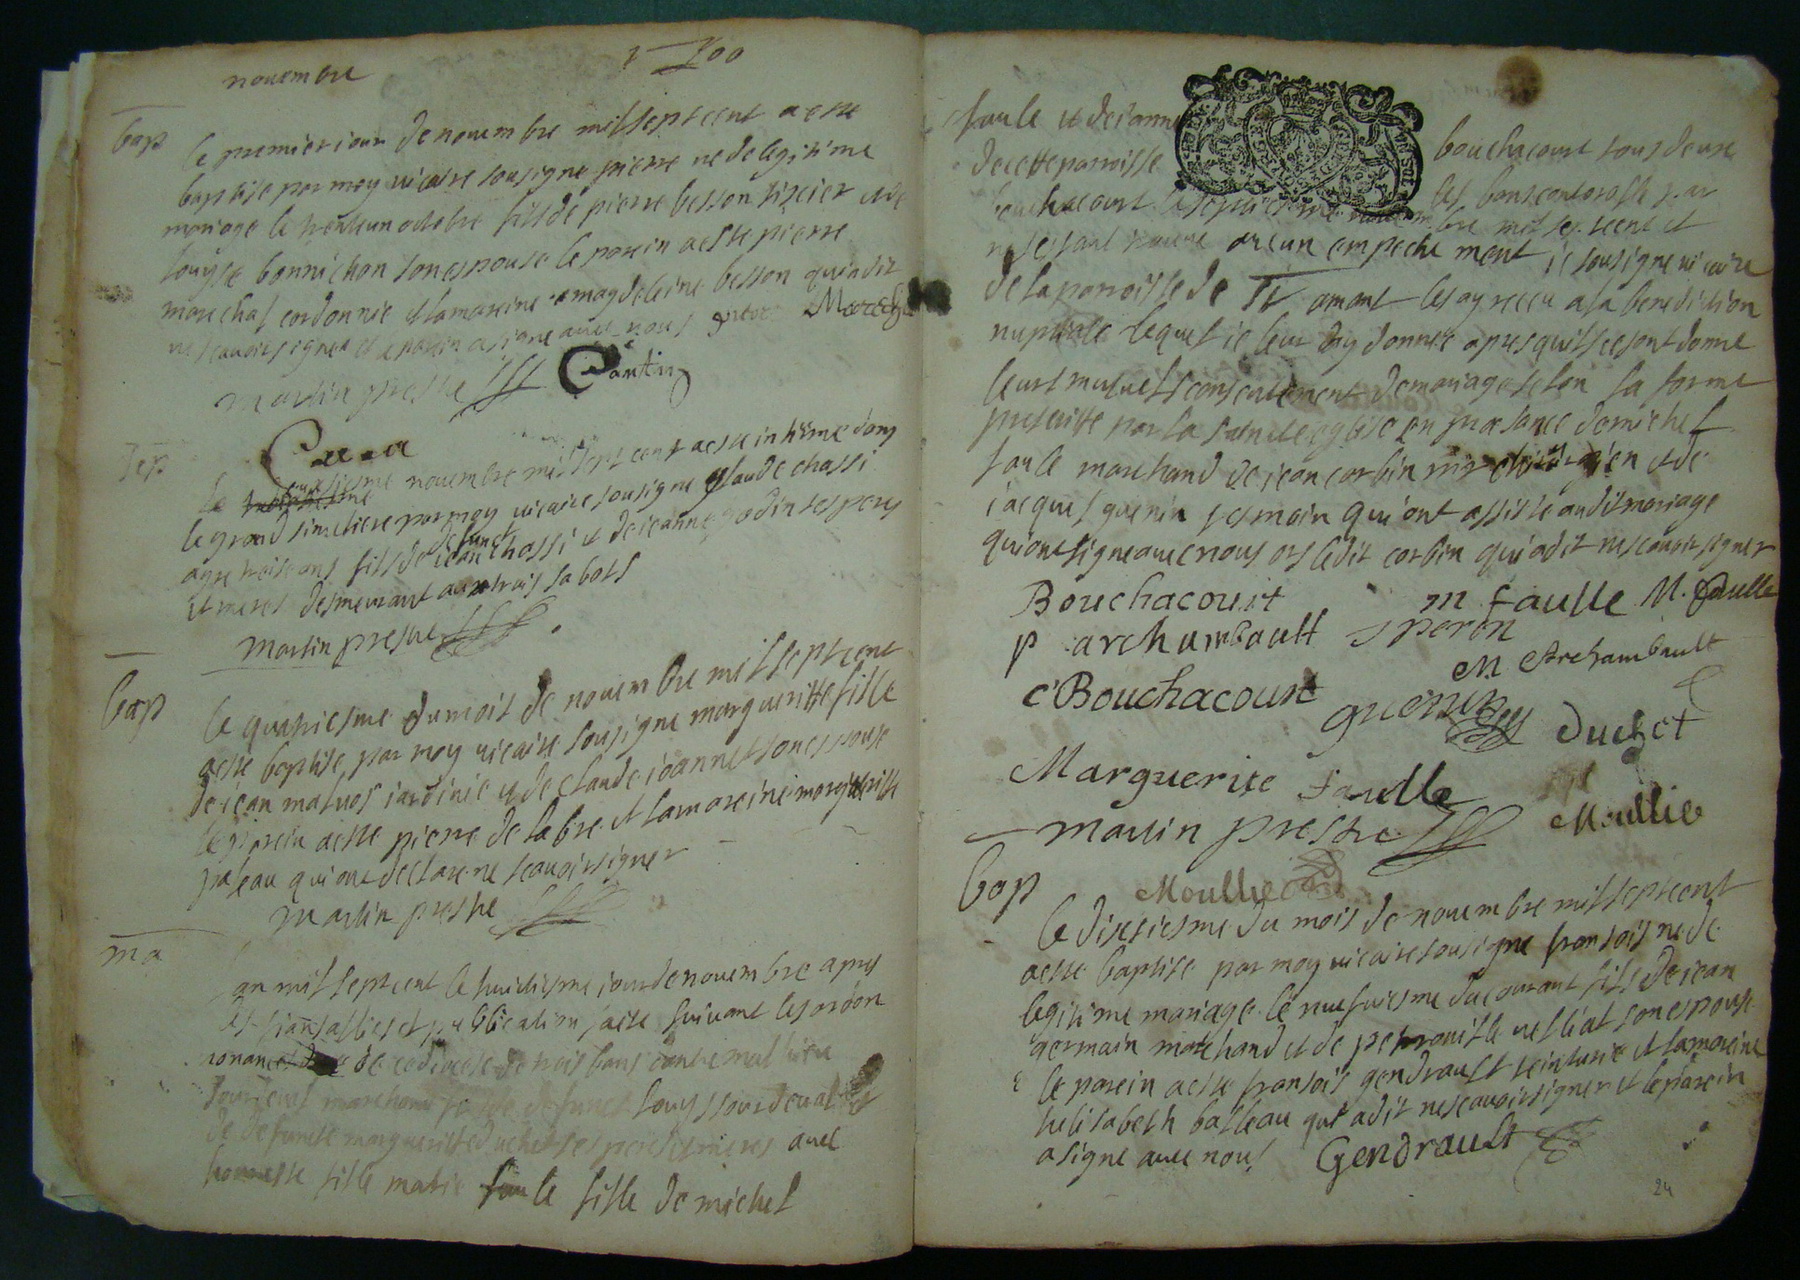 novembre
1700
bap
le premier iour de nouembre mil sept cent a este
baptise par moy uicaire sousigne pierre ne de legitime
mariage le trente un octobre fils de pierre besson tixier et de
louyse bonnichon son espouse le parein a este pierre
marechal cordonnie et la mareine magdeleine besson qui a dit
ne scauoir signer et le parein a signe auec nous
Marech
martin prestre
Cantin
sep
le nouembre mil sept cent a este inhume dans
le grand simetiere par moy uicaire sousigne glaude chassi
age trois ans fils de defunct iean chassi et de ieanne godin ses peres
et meres demeurant aux trois sabots
martin prestre
bap
le quatriesme du mois de nouembre mil sept cent
a este baptise par moy uicaire sousigne margueritte fille
de iean maluos iardinie et de claude ioannet son espouse
le parein a este pierre de labre et la mareine margueritte
paleau qui ont declare ne scauoir signer
martin prestre
ma
an mil sept cent le huictiesme iour de nouembre apres
les fiansailles et publication faite suiuant les ordon
nonances de ce diocese de trois bans entre mathieu
sourdeual marchand fils de defunct louys sourdeual et
de defuncte margueritte duchet ses peres et meres auec
honneste fille marie faule fille de michel
faule et de ianne
bouchacourt tous deux
de cette parroisse
les bans controlle par
bouchacourt le septiesme nouembre mil sept cent et
ne sestant trouue aucun empechement ie sousigne uicaire
de la parroisse de St amant les ay receu a la benediction
nuptiale lequel ie leur ay donnee apres quil se sont donne
leurs mutuels consentement de mariage selon la forme
prescritte par la saincte eglise en presance de michel
faule marchand de iean corbin chirurgien et de
iacques guenin tesmoin qui ont assiste audit mariage
qui ont signe auec nous ors ledit corbin qui a dit ne scauoir signer
Bouchacourt
m faulle M. faulle
p archambault
J peron
M Archambault
C Bouchacourt
guenin
Duchet
Marguerite faulle
martin prestre
Moullie
Moullie
bap
le dixiesme du mois de nouembre mil sept cent
a este baptise par moy uicaire sousigne fransois ne de
legitime mariage le neufuiesme du courant fils de iean
germain marchand et de petronille uelliat son espouse
le parein a este fransois gendrault teinturie et la mareine
helisabeth balleau qui a dit ne scauoir signer et le parein
a signe auec nous
Gendrault
24